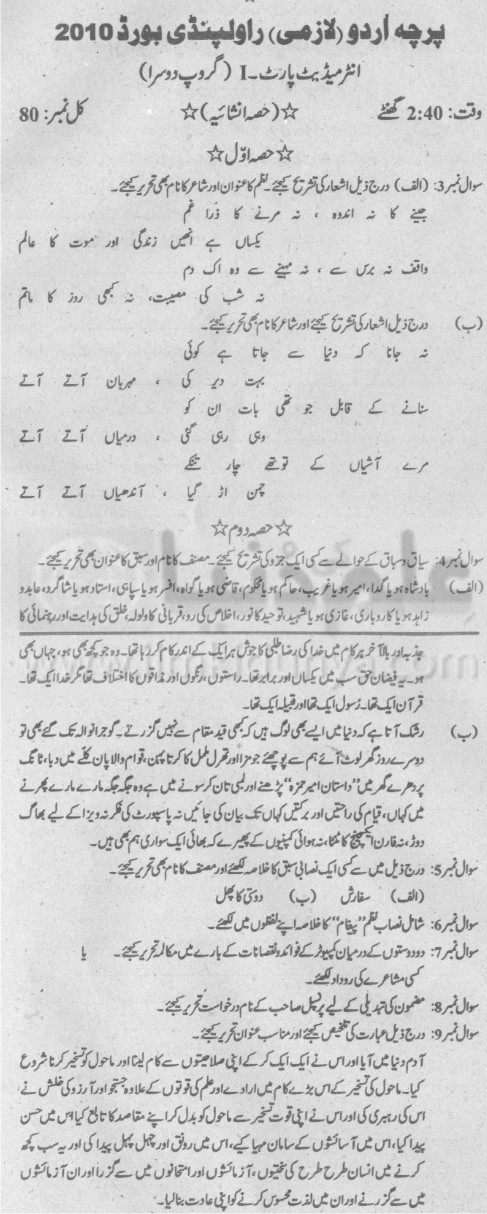 پرچہ اُردو (لازمی) راولپنڈی بورڈ 2010
انٹرمیڈیٹ پارٹ۔I (گروپ دوسرا)
وقت: 2:40 گھنٹے ☆(حصہ انشائیہ)☆ کل نمبر: 80
☆حصہ اوّل☆
سوال نمبر3: (الف) درج ذیل اشعار کی تشریح کیجئے۔ نظم کا عنوان اور شاعر کا نام بھی تحریر کیجئے۔
جینے کا نہ اندوہ ، نہ مرنے کا ذرا غم
یکساں ہے انھیں زندگی اور موت کا عالم
واقف نہ برس سے ، نہ مہینے سے وہ اک دم
نہ شب کی مصیبت، نہ کبھی روز کا ماتم
(ب) درج ذیل اشعار کی تشریح کیجئے اور شاعر کا نام بھی تحریر کیجئے۔
نہ جانا کہ دنیا سے جاتا ہے کوئی
بہت دیر کی ، مہرباں آتے آتے
سنانے کے قابل جو تھی بات ان کو
وہی رہ گئی ، درمیاں آتے آتے
مرے آشیاں کے تو تھے چار تنکے
چمن اڑ گیا ، آندھیاں آتے آتے
☆حصہ دوم☆
سوال نمبر4: سیاق و سباق کے حوالے سے کسی ایک جزو کی تشریح کیجئے۔ مصنف کا نام اور سبق کا عنوان بھی تحریر کیجئے۔
(الف) بادشاہ ہو یا گدا، امیر ہو یا غریب، حاکم ہو یا محکوم، قاضی ہو یا گواہ، افسر ہو یا سپاہی، استاد ہو یا شاگرد، عابد و
زاہد ہو یا کاروباری، غازی ہو یا شہید، توحید کا نور، اخلاص کی رو، قربانی کا ولولہ، خلق کی ہدایت اور رہنمائی کا
جذبہ اور بالآخر ہر کام میں خدا کی رضا طلبی کا جوش ہر ایک کے اندر کام کر رہا تھا۔ وہ جو کچھ بھی ہو، جہاں بھی
ہو۔ یہ فیضان حق سب میں یکساں اور برابر تھا۔ راستوں، رنگوں اور مذاقوں کا اختلاف تھا مگر خدا ایک تھا۔
قرآن ایک تھا۔ رسول ایک تھا اور قبلہ ایک تھا۔
(ب) رشک آتا ہے کہ دنیا میں ایسے بھی لوگ ہیں کہ کبھی قید مقام سے نہیں گزرتے۔ گوجرانوالہ تک گئے بھی تو
دوسرے روز گھر لوٹ آئے ہم سے پوچھئے جو مزا اور تھرل ململ کا کرتا پہن، قوام والا پان کلے میں دبا، ٹانگ
پر دھرے گھر میں "داستان امیر حمزہ" پڑھنے اور لمبی تان کر سونے میں ہے وہ جگہ جگہ مارے مارے پھرنے
میں کہاں، قیام کی راحتیں اور برکتیں کہاں تک بیان کی جائیں نہ پاسپورٹ کی فکر نہ ویزا کے لیے بھاگ
دوڑ، نہ فارن ایکسچینج کا ٹنٹا، نہ ہوائی کمپنیوں کے پھیرے کہ بھائی ایک سواری ہم بھی ہیں۔
سوال نمبر5: درج ذیل میں سے کسی ایک نصابی سبق کا خلاصہ لکھئے اور مصنف کا نام بھی تحریر کیجئے۔
(الف) سفارش (ب) دوستی کا پھل
سوال نمبر6: شامل نصاب نظم "پیغام" کا خلاصہ اپنے لفظوں میں لکھئے۔
سوال نمبر7: دو دوستوں کے درمیان کمپیوٹر کے فوائد و نقصانات کے بارے میں مکالمہ تحریر کیجئے۔ یا
کسی مشاعرے کی روداد لکھئے۔
سوال نمبر8: مضمون کی تبدیلی کے لیے پرنسپل صاحب کے نام درخواست تحریر کیجئے۔
سوال نمبر9: درج ذیل عبارت کی تلخیص کیجئے اور مناسب عنوان تحریر کیجئے۔
آدم دنیا میں آیا اور اس نے ایک ایک کر کے اپنی صلاحیتوں سے کام لینا اور ماحول کو تسخیر کرنا شروع
کیا۔ ماحول کی تسخیر کے اس بڑے کام میں ارادے اور علم کی قوتوں کے علاوہ جستجو اور آرزو کی خلش نے
اس کی رہبری کی اور اس نے اپنی قوت تسخیر سے ماحول کو بدل کر اپنے مقاصد کا تابع کیا اس میں حسن
پیدا کیا، اس میں آسائشوں کے سامان مہیا کیے، اس میں رونق اور چہل پہل پیدا کی اور یہ سب کچھ
کرنے میں انسان طرح طرح کی سختیوں، آزمائشوں اور امتحانوں میں سے گزرا اور ان آزمائشوں
میں سے گزرنے اور ان میں لذت محسوس کرنے کو اپنی عادت بنا لیا۔